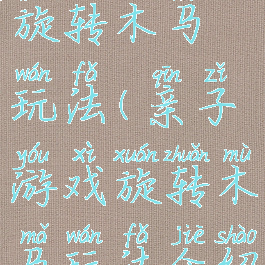 旋转木马
wán fǎ qīn zǐ
玩法(亲子
yóu xì xuán zhuǎn mù
游戏旋转木
mǎ wán fǎ jiè shào
马玩法介绍